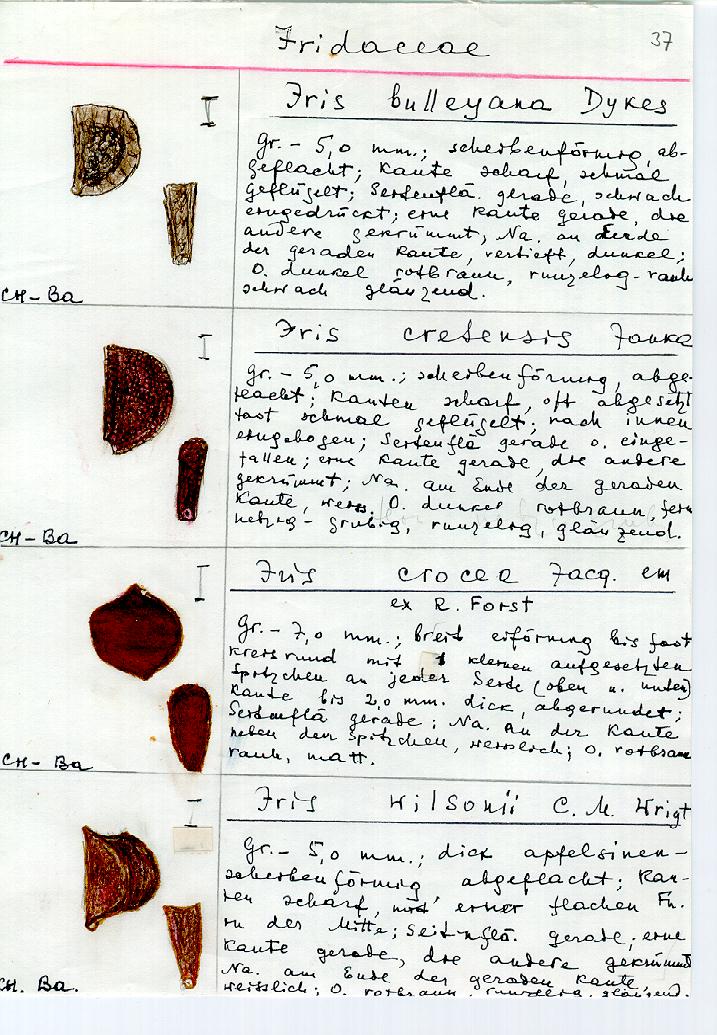 Iridaceae
37
Iris bulleyana Dykes
Gr. - 5,0 mm.; scheibenförmig, ab-
geflacht; Kante scharf, schmal
geflügelt; Seitenflä. gerade, schwach
eingedrückt; eine Kante gerade, die
andere gekrümmt, Na. an Ende
der geraden Kante, vertieft, dunkel;
O. dunkel rotbraun, runzelig-rauh
schwach glänzend.
CH-Ba
Iris cretensis Janka
Gr. - 5,0 mm.; scheibenförmig, abge-
flacht; Kanten scharf, oft abgesetzt
fast schmal geflügelt; nach innen
eingebogen; Seitenflä gerade o. einge-
fallen; eine Kante gerade, die andere
gekrümmt; Na. am Ende der geraden
Kante, weiss. O. dunkel rotbraun, fein
netzig-grubig, runzelig, glänzend.
CH-Ba
Iris crocea Jacq. em
ex R. Forst
Gr. - 7,0 mm.; breit eiförmig bis fast
kreisrund mit 1 kleinen aufgesetzten
Spitzchen an jeder Seite (oben u. unten)
Kante bis 2,0 mm. dick, abgerundet;
Seitenflä gerade; Na. an der Kante
neben den Spitzchen, weisslich; O. rotbraun
rauh, matt.
CH-Ba
Iris wilsonii C. M. Wrigt
Gr. - 5,0 mm.; dick apfelsinen-
scheibenförmig abgeflacht; Kan-
ten scharf, mit einer flachen Fu.
in der Mitte; Seitenflä. gerade; eine
Kante gerade, die andere gekrümmt
Na. am Ende der geraden Kante,
weisslich; O. rotbraun, runzelig, glänzend.
CH. Ba.